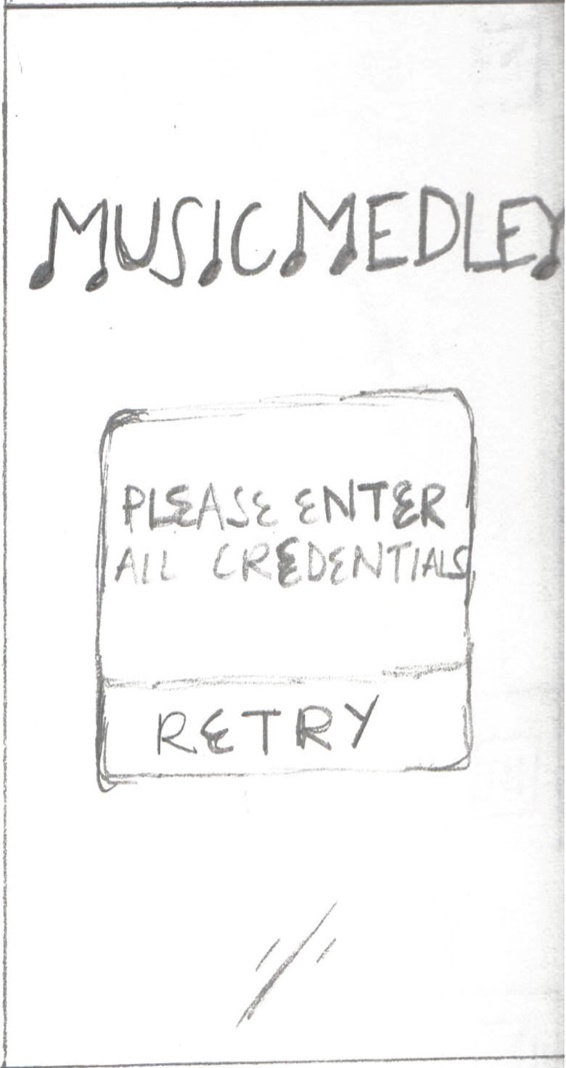 MUSIC MEDLEY
PLEASE ENTER
ALL CREDENTIALS
RETRY